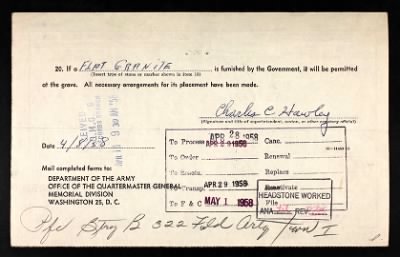 20. If a FLAT GRANITE is furnished by the Government, it will be permitted
(Insert type of stone or marker shown in item 15)
at the grave. All necessary arrangements for its placement have been made.
Charles C. Hawley
(Signature and title of superintendent, sexton, or other cemetery official)
Date 4/8/58
Mail completed forms to:
DEPARTMENT OF THE ARMY
OFFICE OF THE QUARTERMASTER GENERAL
MEMORIAL DIVISION
WASHINGTON 25, D. C.
APR 28 1958
To Process Canc.
To Order Renewal
Replace
To Transp. APR 29 1958
To F & C MAY 1 1958 File
HEADSTONE WORKED
ANA. REV.
Pfc Btry B 322 Fld Arty